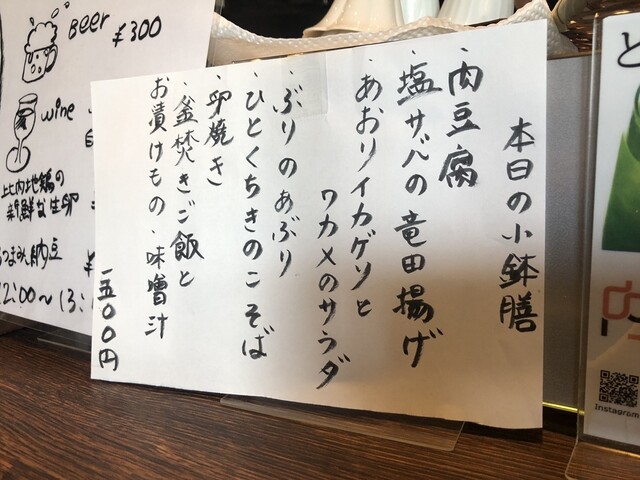 本日の小鉢膳
・肉豆腐
・塩サバの竜田揚げ
・あおりイカゲソと
ワカメのサラダ
・ぶりのあぶり
・ひとくちきのこそば
・卵焼き
・釜焚きご飯と
お漬けもの・味噌汁
一五〇〇円
Beer ¥300
wine
比内地鶏の
新鮮な生卵
おつまみ納豆
12:00〜13:
Instagram
と